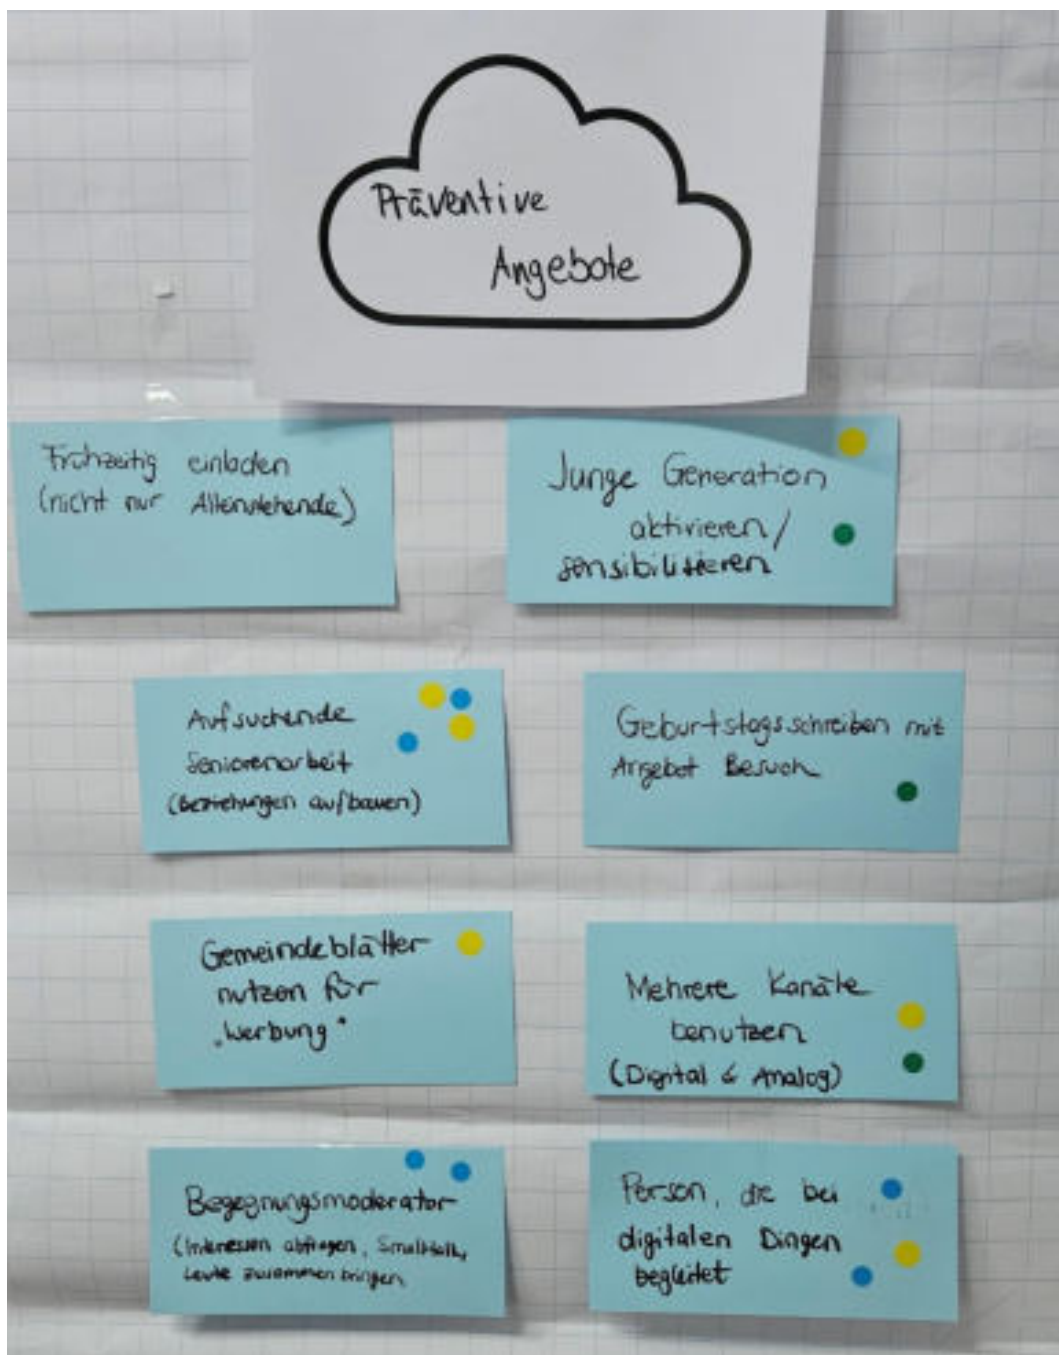 Präventive
Angebote
Frühzeitig einladen
(nicht nur Alleinstehende)
Junge Generation
aktivieren/
sensibilisieren
Aufsuchende
Seniorenarbeit
(Beziehungen aufbauen)
Geburtstagsschreiben mit
Angebot Besuch
Gemeindeblätter
nutzen für
„Werbung"
Mehrere Kanäle
benutzen
(Digital & Analog)
Begegnungsmoderator
(Interessen abfragen, Smalltalk,
Leute zusammen bringen
Person, die bei
digitalen Dingen
begleitet